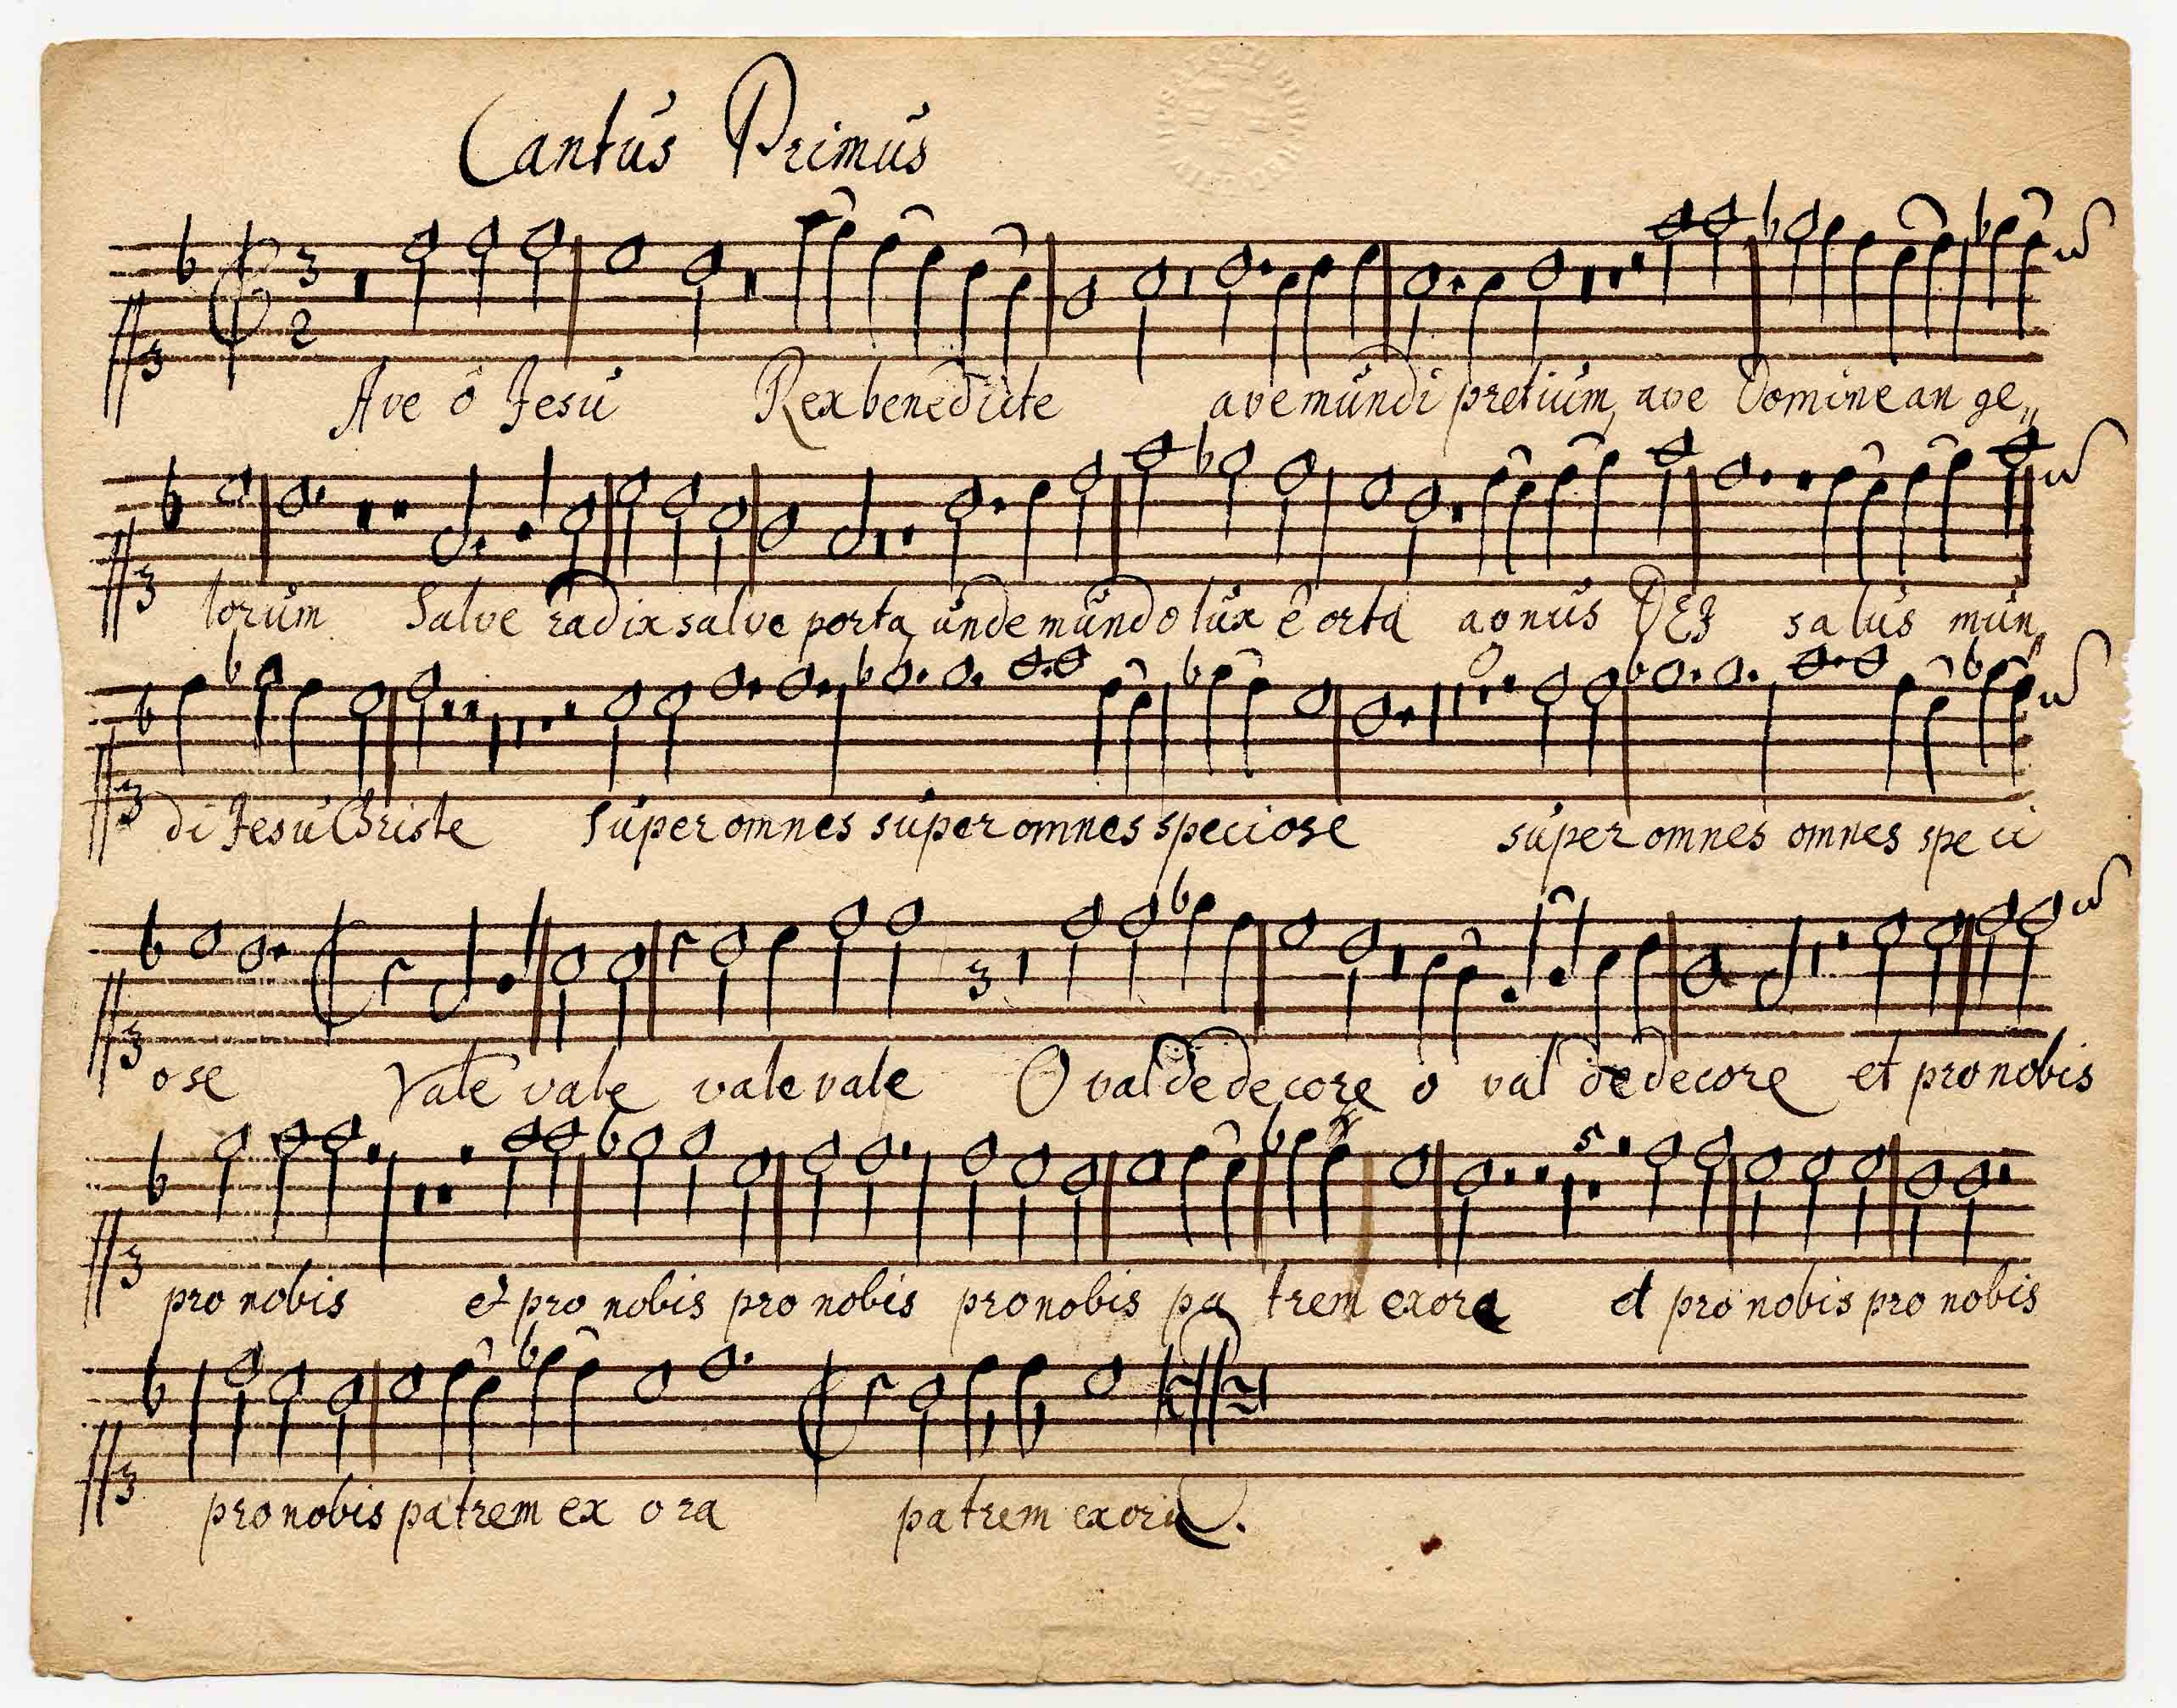 Cantus Primus
3
2
Ave ô Jesu Rex benedicte ave mundi pretium, ave Domine an ge,,
lorum Salve radix salve porta unde mundo lux ê orta agnus DEJ salus mun,,
di Jesu Christe super omnes super omnes speciose super omnes omnes spe ci
3
ose Vale vale vale vale O val de decore o val de decore et pro nobis
5
pro nobis et pro nobis pro nobis pro nobis pa trem exora et pro nobis pro nobis
pro nobis patrem ex o ra patrem exora.